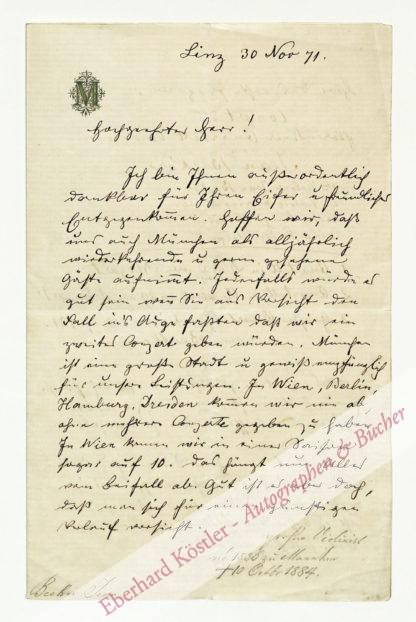 Linz 30 Nov 71.
M
Hochgeehrter Herr!
Ich bin Ihnen außerordentlich
dankbar für Ihren Eifer u freundliches
Entgegenkommen. Hoffen wir, daß
uns auch München als alljährlich
wiederkehrende u gern gesehene
Gäste aufnimmt. Jedenfalls würde es
gut sein wenn Sie aus Vorsicht den
Fall in's Auge faßten daß wir ein
zweites Conzert geben würden. München
ist eine große Stadt u gewiß empfänglich
für unsere Leistungen. In Wien, Berlin,
Hamburg, Dresden kommen wir nie ab,
ohne mehrere Conzerte gegeben zu haben.
In Wien kamen wir in einer Saison
sogar auf 10. Das hängt nun alles
vom Beifall ab. Gut ist es aber doch,
daß man sich für einen günstigen
Verlauf vorsieht.
Violinist
zu
† 10 Octbr 1884.
Eberhard Köstler - Autographen & Bücher